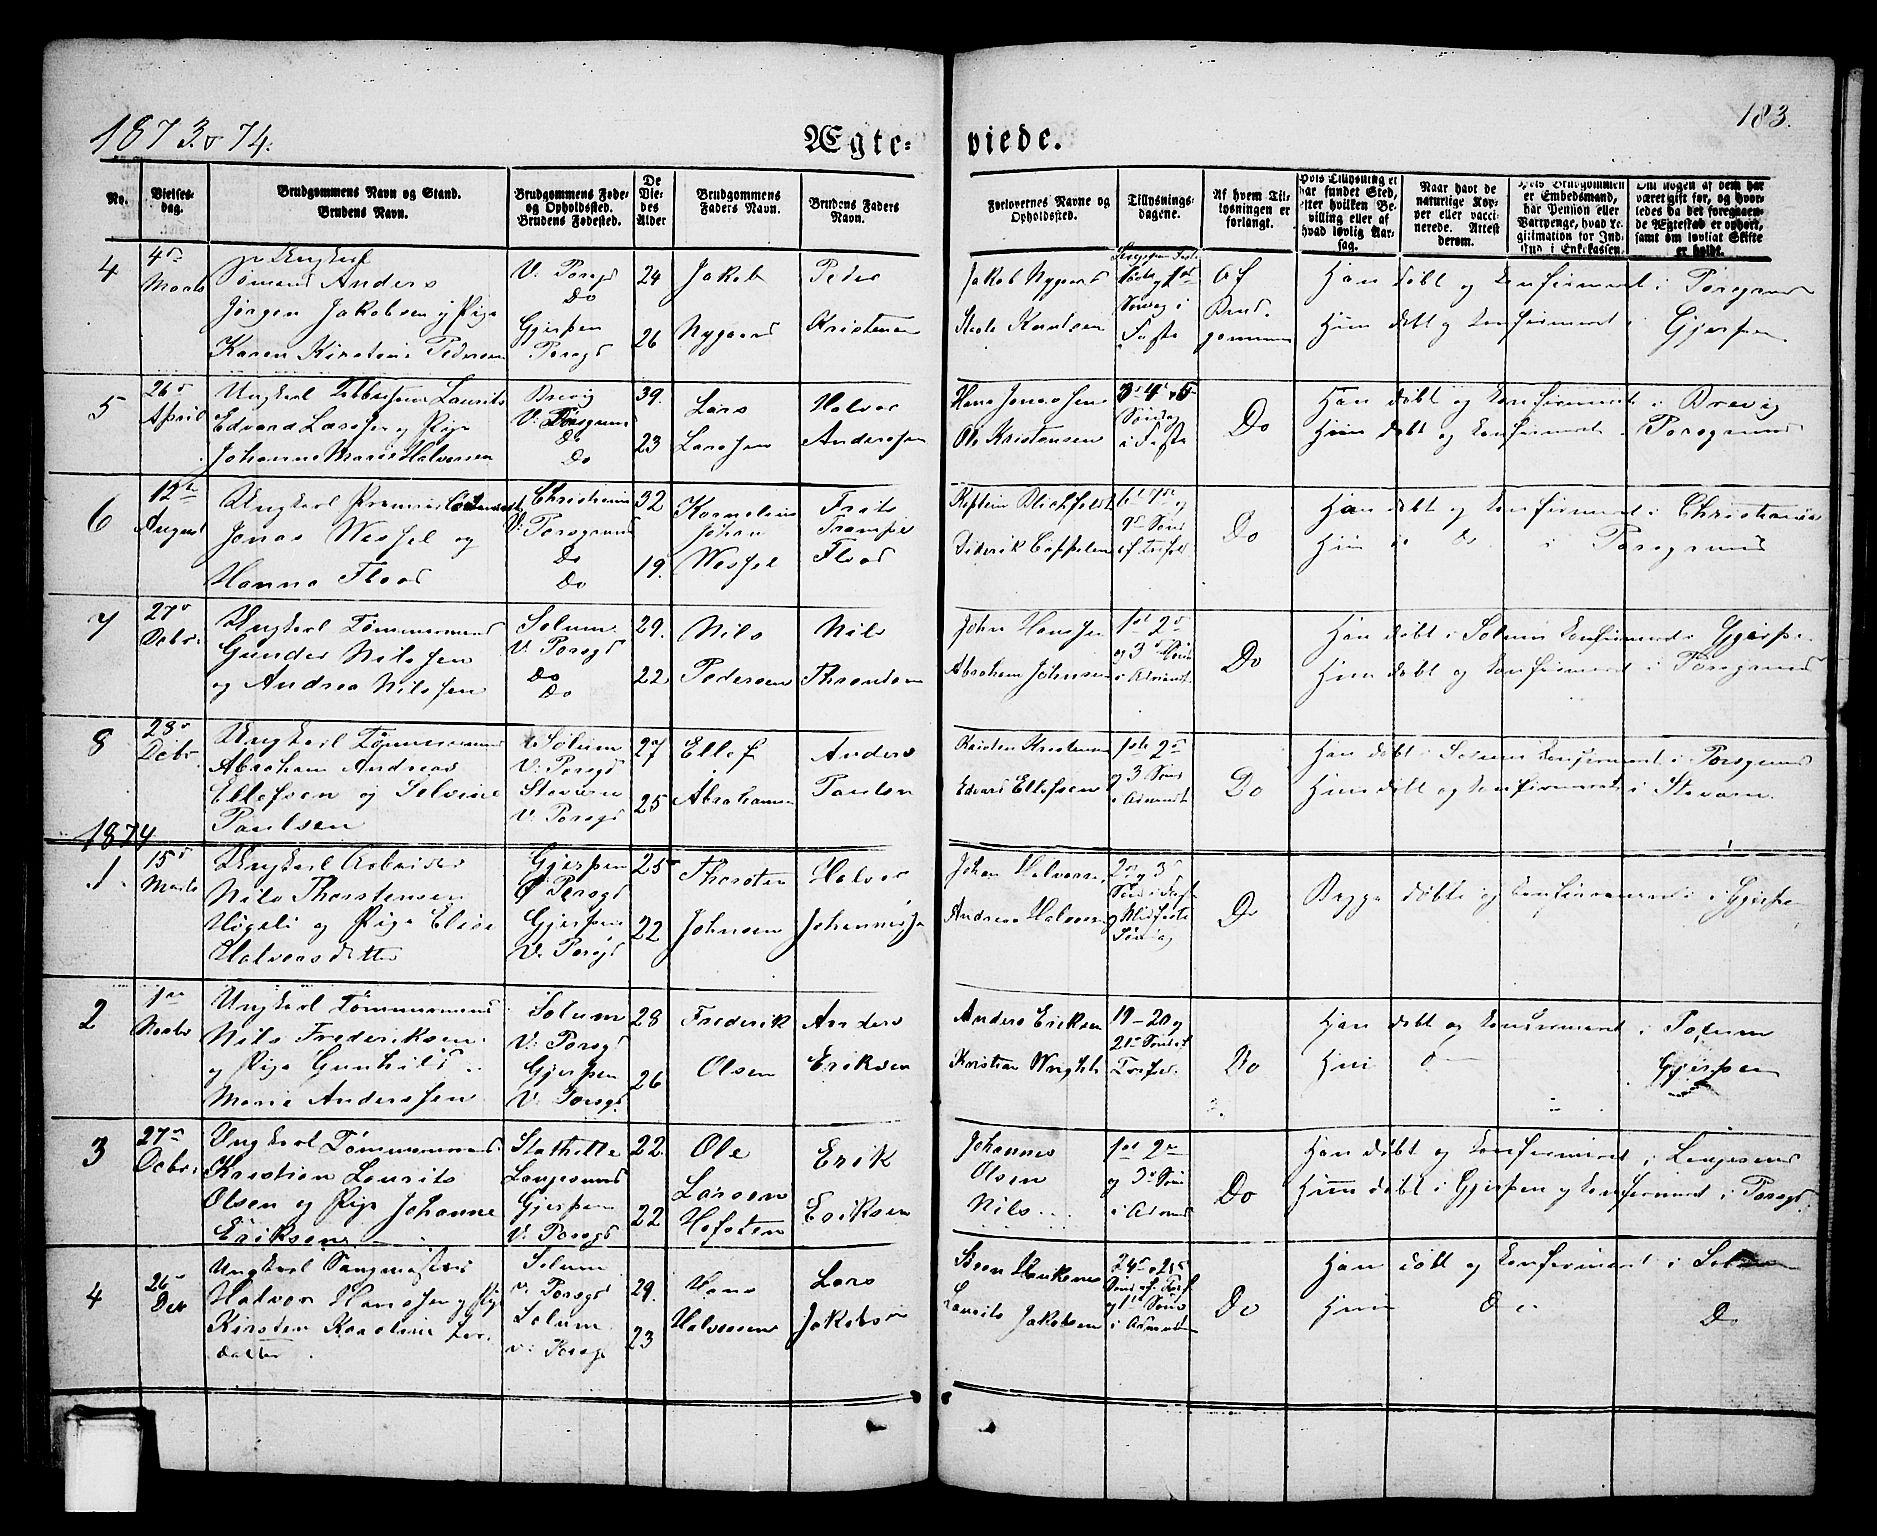 183.
1873 & 74.
Ægte- viede.
No.
Vielses-
dag.
Brudgommens Navn og Stand.
Brudens Navn.
Brudgommens Føde-
og Opholdssted.
Brudens Fødested.
De
Vie-
des
Alder
Brudgommens
Faders Navn.
Brudens Faders
Navn.
Forlovernes Navne og
Opholdssted.
Tillysnings-
dagene.
Af hvem Til-
lysningen er
forlangt.
Hvis Tillysning ei
har fundet Sted,
efter hvilken Be-
villing eller af
hvad lovlig Aar-
sag.
Naar havt de
naturlige Kop-
per eller vacci-
nerede. Attest
derom.
Hvis Brudgommen
er Embedsmand,
har Pension eller
Vartpenge, hvad Le-
gitimation for Ind-
skud i Enkekassen.
Om nogen af dem har
været gift før, og hvor-
ledes da det foregaaen-
de Ægteskab er ophørt,
samt om lovligt Skifte
er holdt.
4
4de
Marts
Ungkarl
Sømand Anders
Jørgen Jakobsen og Pige
Karen Kirstine Pedersen
V. Porsgd
Do
Gjerpen
Porsgd
24
26
Jakob
Nygaard
Peder
Kristensen
Jakob Nygaard
Knudsen
Søndag i
Faste
Af
Brud
gommen
Han døbt og konfirmeret i Porsgrund
Hun døbt og konfirmeret i Gjerpen
5
26de
April
Ungkarl Laurits
Edvard Larssen og Pige
Johanne Marie Halvorsen
Brevig
V. Porsgrund
Do
Do
39.
23
Lars
Larssen
Halvor
Anderssen
Hans Jonassen
Ole Kristensen
3de 4de & 5te
Søndag
i Faste
Do
Han døbt og konfirmeret i Brevig
Hun døbt og konfirmeret i Porsgrund
6
12te
August
Ungkarl
Jonas Wessel og
Hanna Flood
Christiania
V. Porsgrund
Do
Do
32
19.
Kornelius
Johan
Wessel
Frits
Trampe
Flood
Kaptein Blichfeldt
Diderik Cappelen
6te 7de og
Do
Han døbt og konfirmeret i Christiania
Hun do Do i Porsgrund
7
27de
Decbr.
Ungkarl Tømmermand
Gunder Nilssen
og Andrea Nilssen
Solum
V. Porsgd
Do
Do
29.
22
Nils
Pedersen
Nils
Thronsen
John Hanssen
Abraham Johnsen
1ste 2de
og 3de Sønd
i Advent
Do
Han døbt i Solum konfirmeret i Gjerpen
Hun døbt og konfirmeret i Porsgrund
8
28de
Decbr.
Ungkarl Tømmermand
Abraham Andreas
Ellefsen og Selvine
Paulsen
Solum
V. Porsgd
Stavern
V. Porsgd
27
25
Ellef
Abrahamsen
Anders
Paulsen
Karsten Kristensen
Edvard Ellefsen
1ste 2de
og 3 Sønd
i Advent
Do
Han døbt i Solum konfirmeret i Porsgrund
Hun døbt og konfirmeret i Stavern.
1874
1.
15de
Marts
Ungkarl Arbeider
Nils Thorstensen
Høgeli og Pige Elise
Halvorsdatter
Gjerpen
Ø Porsgd
Gjerpen
V. Porsgd
25
22
Thorsten
Johnsen
Halvor
Johannes
Johan Halvorsen
Andreas Halvorsen
2de og 3de
Søndag
Do
Begge døbte og konfirmerede i Gjerpen
2
1ste
Novbr
Ungkarl Tømmermand
Nils Frederiksen
og Pige Gunhild
Marie Anderssen
Solum
V. Porsgd
Gjerpen
V. Porsgd
28
26
Frederik
Olsen
Anders
Eriksen
Anders Eriksen
Kristian Wright
19-20 og
21de Sønd ef
Trefol.
Do
Han døbt og konfirmeret i Solum
Hun do Gjerpen
3
27de
Decbr.
Ungkarl Tømmermand
Karsten Laurits
Olsen og Pige Johanne
Eriksen
Stathelle
Langesund
Gjerpen
V. Porsgd
22.
22
Ole
Larsen
Hafsten
Erik
Eriksen
Johannes
Olsen
Nils
1ste 2de
og 3de Sønd
i Advent
Do
Han døbt og konfirmeret i Langesund
Hun døbt i Gjerpen og konfirmeret i Porsgd.
4
26de
Dec
Ungkarl Sangmester
Halvor Hanssen og Pige
Kirsten Karoline Lars
datter
Solum
V. Porsgd
Solum
V. Porsgd
29.
23
Hans
Halvorsen
Lars
Jakobsen
Laurits Jakobsen
24de & 25de
Sønd ef. Tref
og 1ste Sønd
i Advent
Do
Han døbt og konfirmeret i Solum
Hun do Do